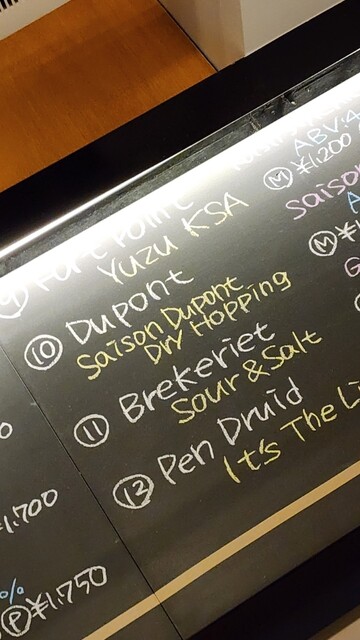 9 Fort Point
Yuzu KSA
10 Dupont
Saison Dupont
Dry Hopping
11 Brekeriet
Sour & Salt
12 Pen Druid
It's The
ABV:4
M ¥1,200
Saison
M ¥1
1,700
%
P ¥1,750